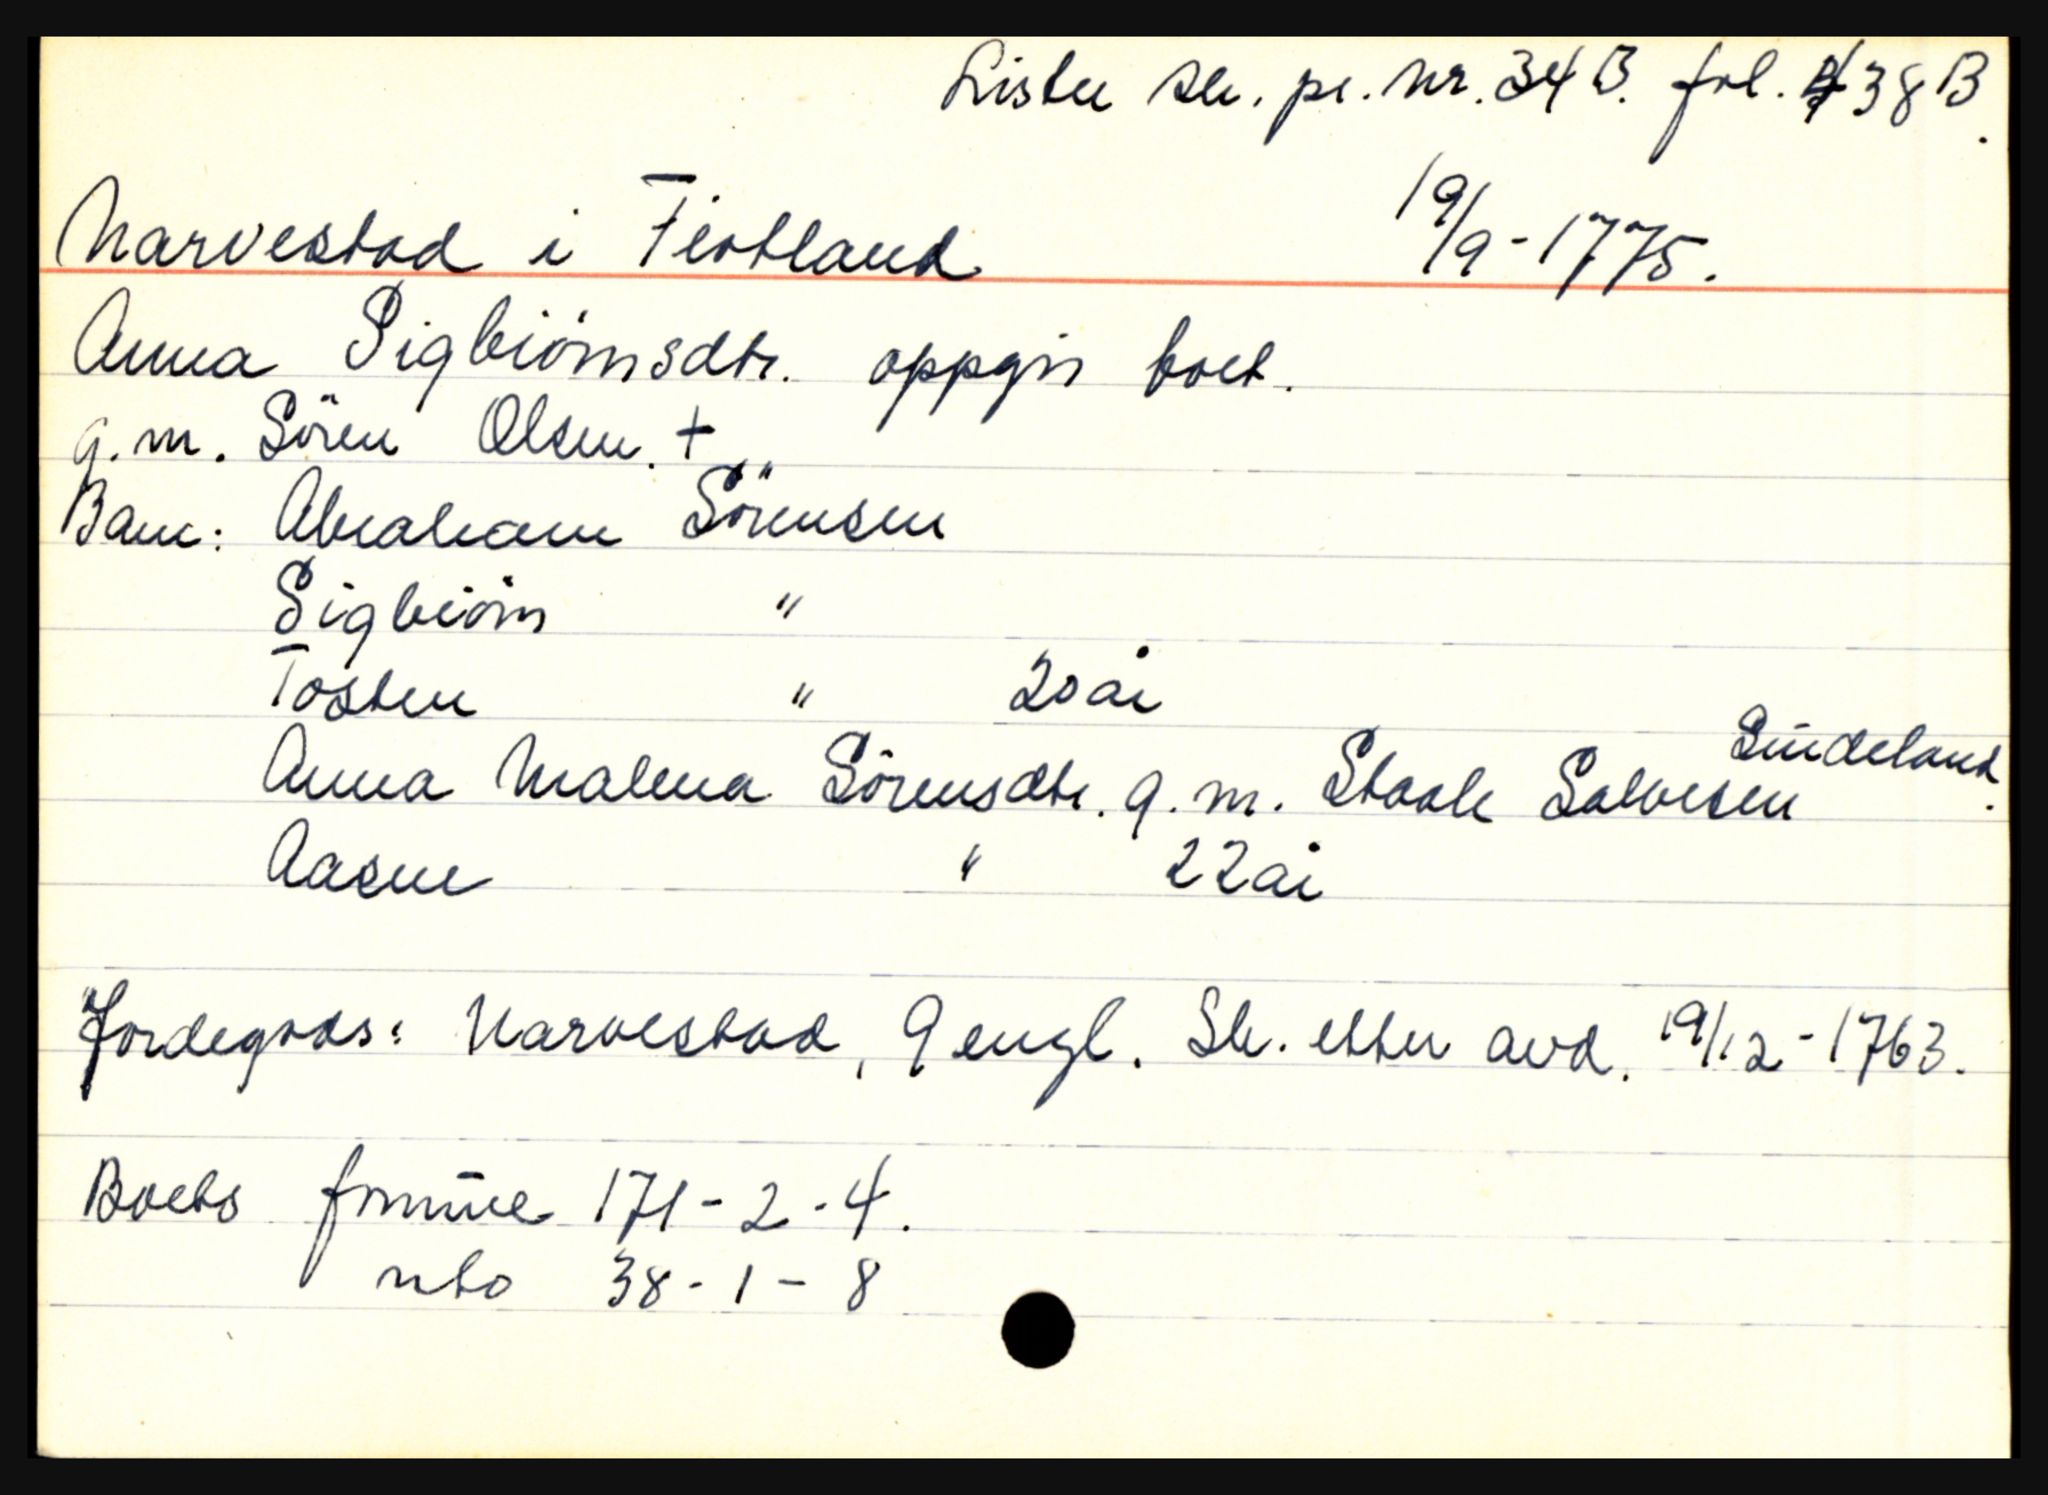 Lister sk. pr. nr. 34 B. fol. 438 B.
Narvestad i Fiotland 19/9-1775.
Anna Sigbiörnsdtr. oppgir boet.
g.m. Sören Olsen. +
Barn: Abraham Sörensen
Sigbiörn "
Tosten " 20 år
Anna Malena Sörensdtr. g.m. Staale Salvesen Sindeland.
Aasne " 22 år
Jordegods: Narvestad, 9 engl. Sk. etter avd. 19/12-1763.
Boets formue 171-2-4.
nto 38-1-8